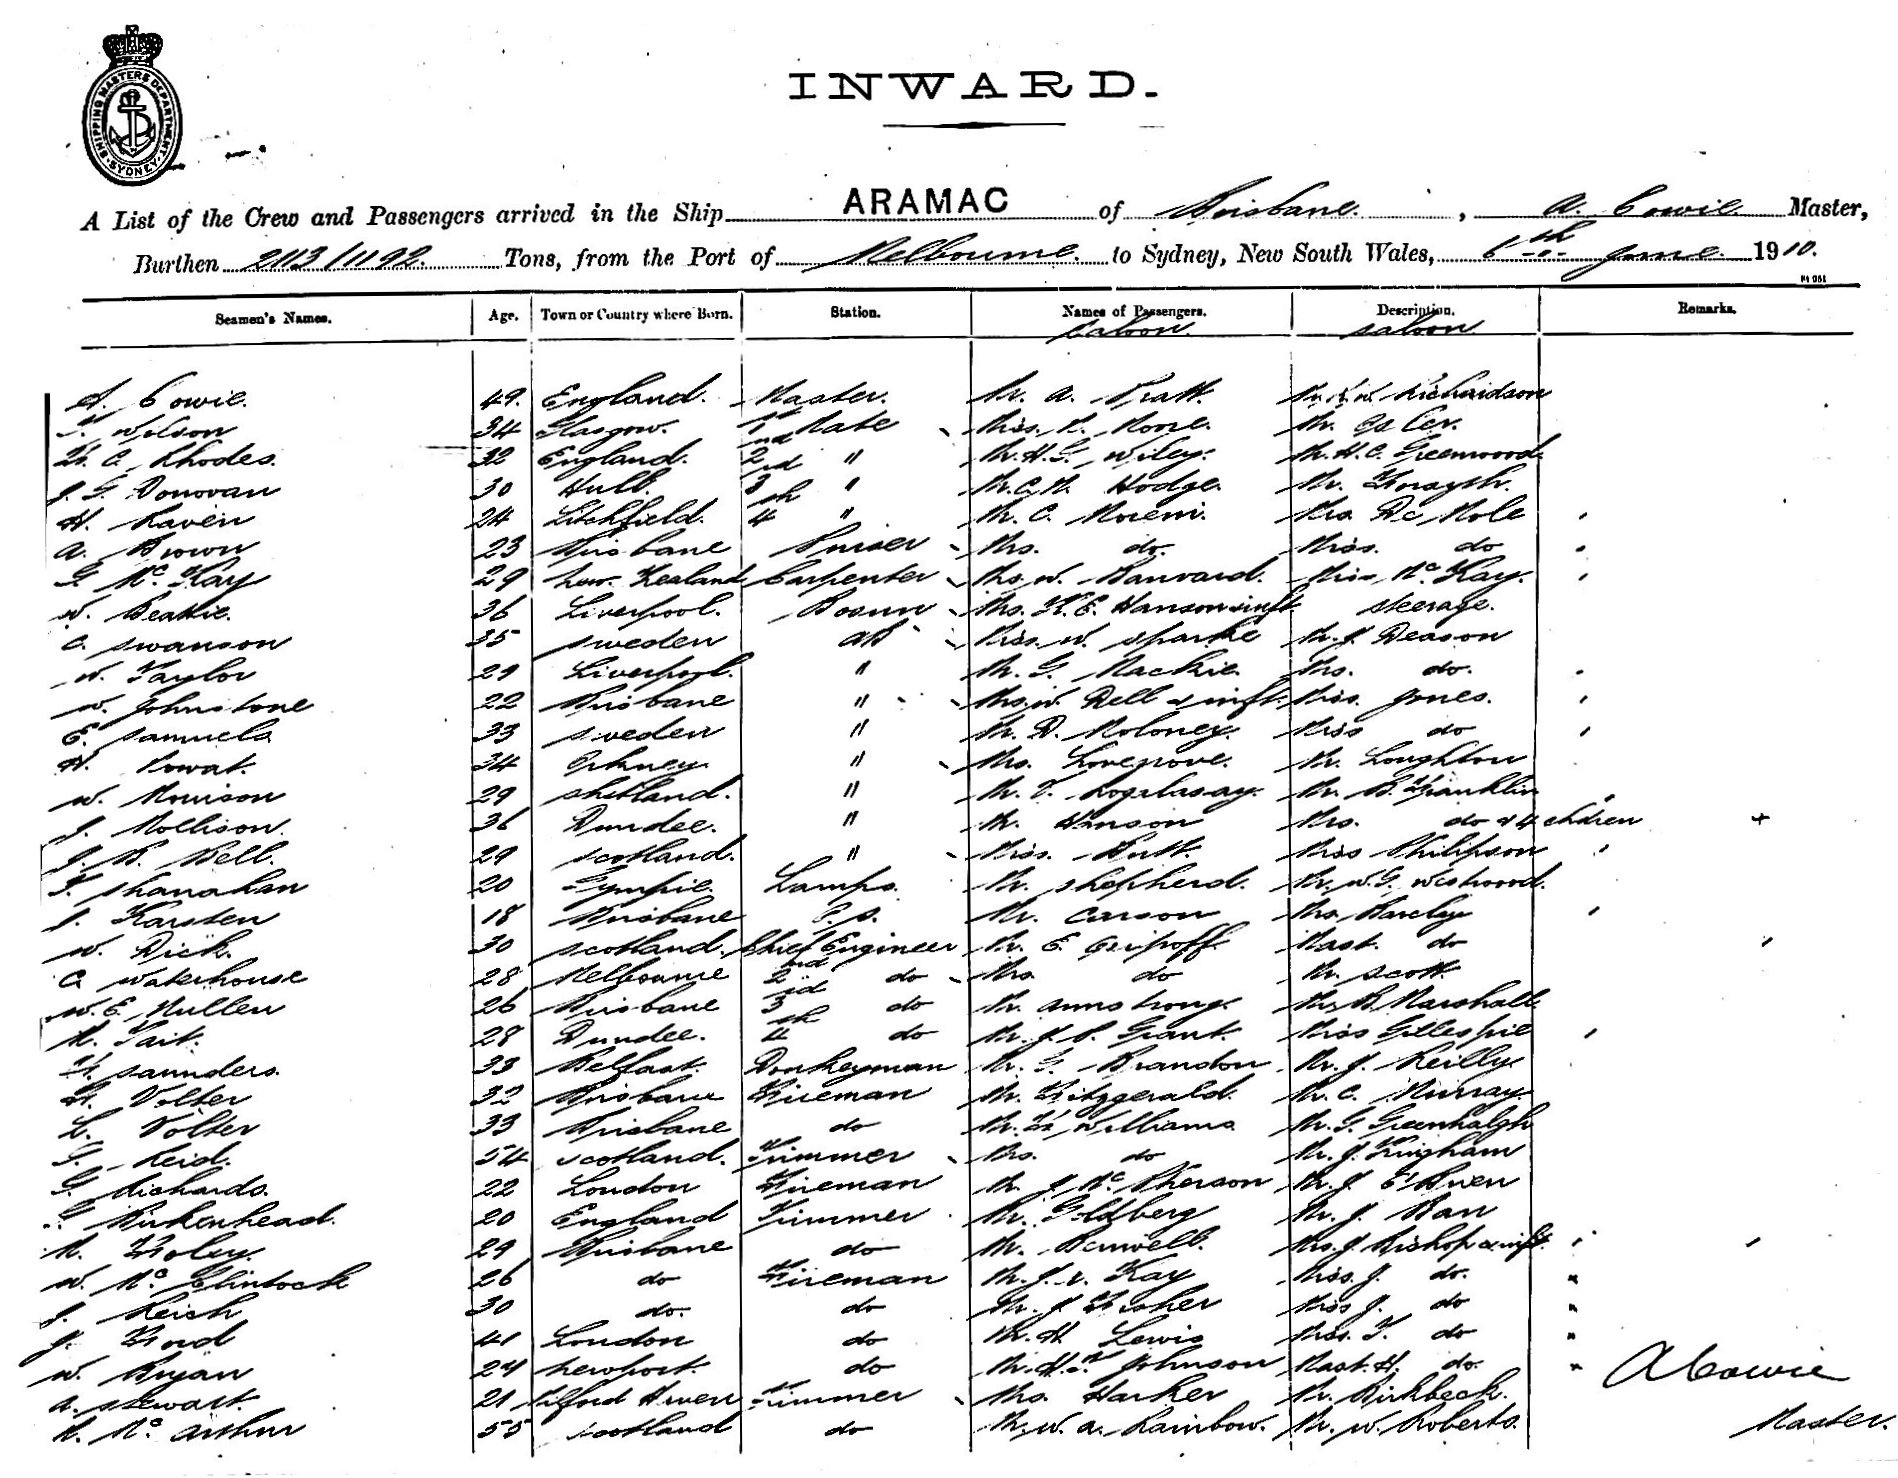 SHIPPING MASTERS DEPARTMENT
SYDNEY
INWARD.
A List of the Crew and Passengers arrived in the Ship ARAMAC of Brisbane. , A. Cowie Master,
Burthen 2113/1192. Tons, from the Port of Melbourne. to Sydney, New South Wales, 6th June 1910.
Seamen's Names. Age. Town or Country where Born. Station. Names of Passengers. Description. Remarks.
Saloon Saloon
A. Cowie. 49. England. Master. Mr. A. Pratt. Mr. W. Richardson
Wilson 34 Glasgow. 1st Mate Miss. Moore. Mr.
C. Rhodes. 32 England. 2nd " Mr. H.G. Wiley. Mr. H.C. Greenwood
J. G. Donovan 30 Hull. 3rd " Mr. C. Hodge. Mr. Forsyth.
H. Raven 24 Litchfield. 4th " Mr. C. Moreni. Mrs. De Mole
A. Brown 23 Brisbane Purser Mrs. do. Miss. do
G. McKay 29 New Zealand Carpenter Mrs. W. Barnard. Miss McKay.
W. Beattie. 36 Liverpool. Bosun Mrs. Hanson & inft. Steerage.
C. Swanson 35 Sweden AB Miss. W. Sparke Mr. J. Deason
W. Taylor 29 Liverpool. " Mr. G. Mackie Mrs. do.
W. Johnstone 22 Brisbane " Mrs. W. Dell & inft. Miss Jones.
E. Samuels 33 Sweden " Mr. D. Moloney. Miss do
Powat. 34 Orkney " Mrs. Lovegrove. Mr. Loughton
W. Morrison 29 Shetland. " Mr. Mr. B. Franklin
J. Mollison. 36 Dundee. " Mr. Hanson Mrs. do & 4 children
J. B. Bell. 29 Scotland. " Miss. Butt. Miss Philipson
Shanahan 20 Gympie. Lamps. Mr. Shepherd. Mr. W.G. Westwood.
Karsten 18 Brisbane O.S. Mr. Carson Mrs. Barclay
W. Dick. 30 Scotland. Chief Engineer Mr. E. Mast. do
C. Waterhouse 28 Melbourne 2nd do Mrs do Mr. Scott.
W. E. Mullen 26 Brisbane 3rd do Mr. Armstrong. Marshall.
Tait. 28 Dundee. 4th do Mr. J. P. Grant. Miss Gillespie
Saunders. 33 Belfast. Donkeyman Mr. G. Brandon Mr. J. Reilly
Volter 32 Brisbane Fireman Mr. Fitzgerald. Mr. C. Murray
L. Volter 33 Brisbane do Mr. Williams Mr. G. Greenhalgh
G. Reid. 54 Scotland. Trimmer Mrs. do Mr. J. Kingham
G. Richards. 22 London Fireman Mr. J. McPherson Mr. J.
Birkenhead. 20 England Trimmer Mr. Goldberg Mr. J. Ban
Foley. 29 Brisbane do Mr. Barwell. Mrs. J. Bishop & inft.
W. McClintock 26 do Fireman Mr. J. Kay Miss. J. do.
J. Reich 30 do. do Mr. J. Fisher Miss J. do
J. Ford 41 London do Mr. H. Lewis Miss. do
W. Bryan 24 Newport. do Mr. H. Johnson Mast. H. do.
A. Stewart. 21 Milford Haven Trimmer Mrs. Harker Mr. Birkbeck.
McArthur 55 Scotland do Mr. W. A. Rainbow. Mr. W. Roberts.
A Cowie
Master.